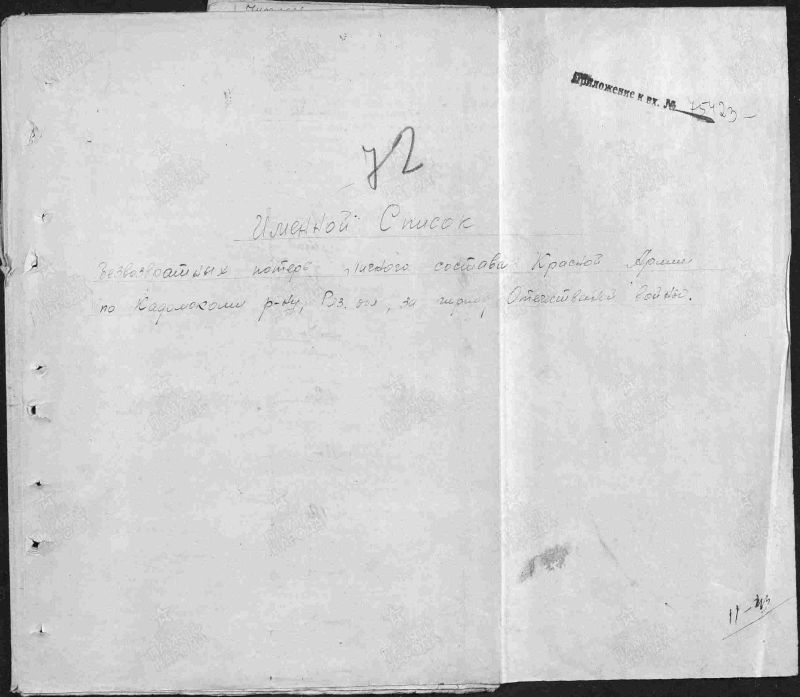 Приложение к вх. № 15423
72
Именной Список
безвозвратных потерь личного состава Красной Армии
по Кадомскому р-ну, Ряз. обл., за период Отечественной войны.